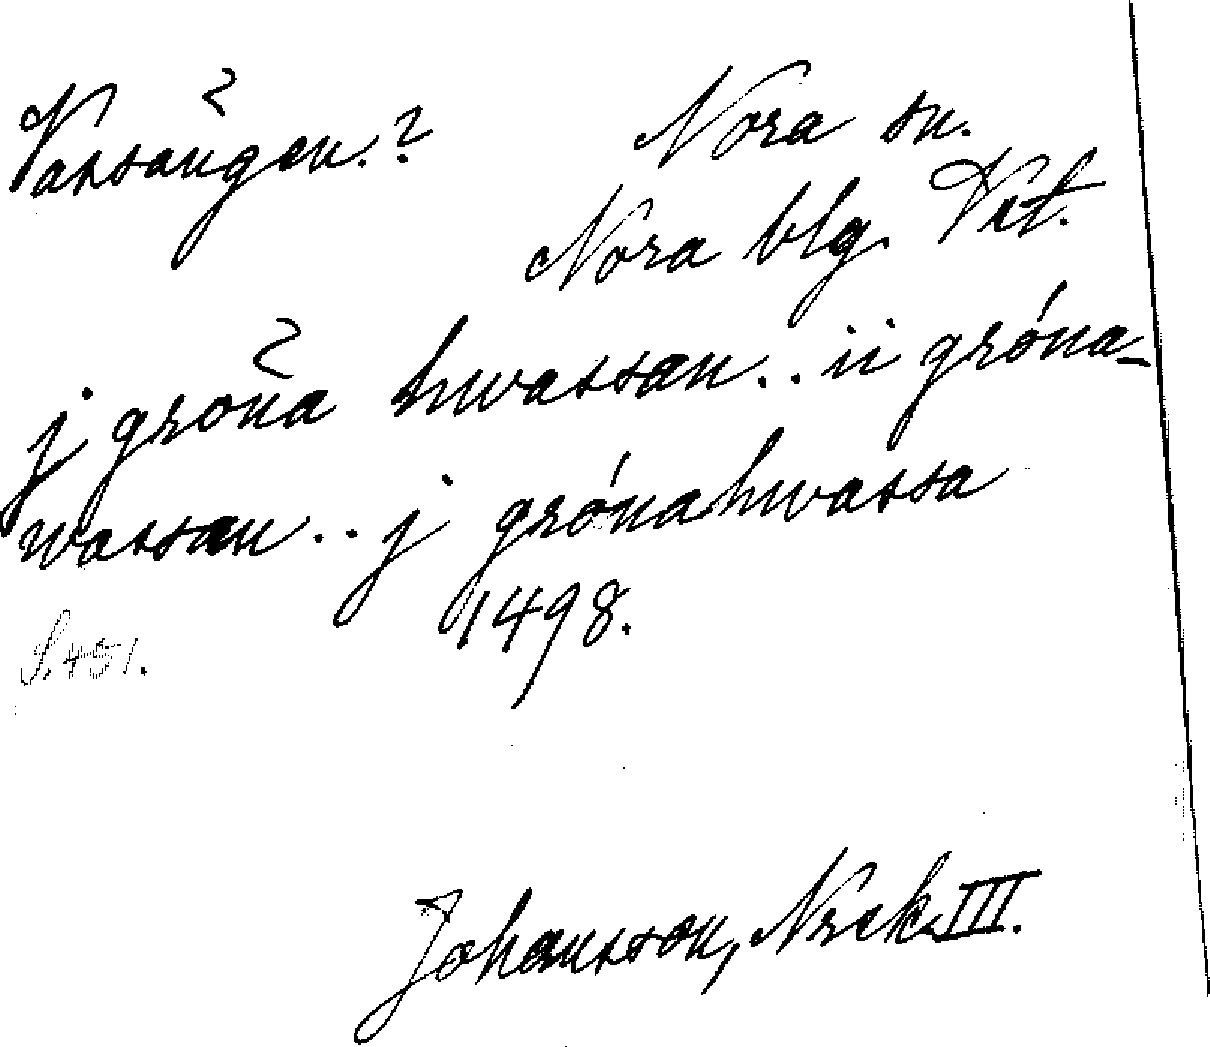 Vassängen.? Nora sn.
Nora blg. Vstl.
j grona hwassan.. ii gróna-
wassan.. j grónahwassa
1498.
S. 451.
Johansson, Nrck III.